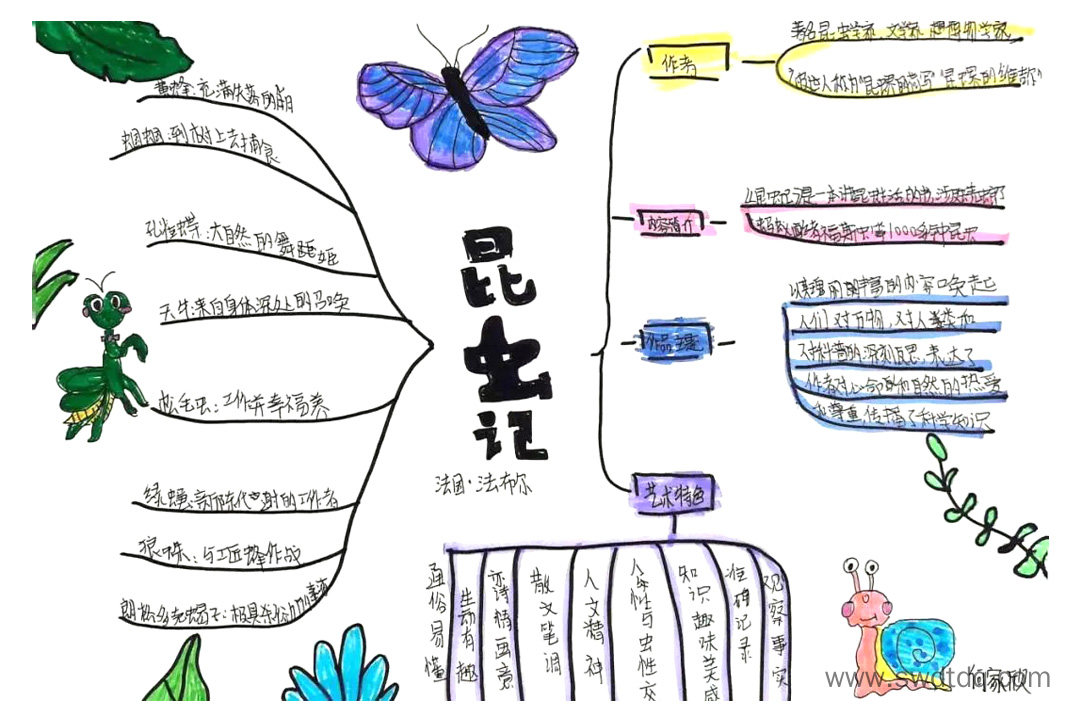 昆虫记
法国·法布尔
黄蜂:充满
蝈蝈:到树上去捕食
孔雀蝶:大自然的舞蹈姬
天牛:来自身体深处的召唤
松毛虫:工作并幸福着
绿蝇:新陈代谢的工作者
狼蛛:与工匠蜂作战
朗格多克蝎子:极具杀伤力的毒液
作者
著名昆虫学家、文学家、博物学家
被世人称为"昆虫界的荷马""昆虫界的维吉尔"
内容简介
《昆虫记》是一本讲昆虫生活的书,涉及
等1000多种昆虫
作品主题
的丰富的内容唤起
人们对万物,对人类和
对科普的深刻反思,表达了
作者对生命和自然的热爱
和尊重,传播了科学知识
艺术特色
通俗易懂
生动有趣
诗情画意
散文笔调
人文精神
人性与虫性交
知识趣味美感
准确记录
观察事实
www.swdtdq.com